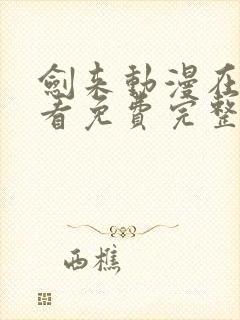 劍来動漫在
看免費完整
西樵